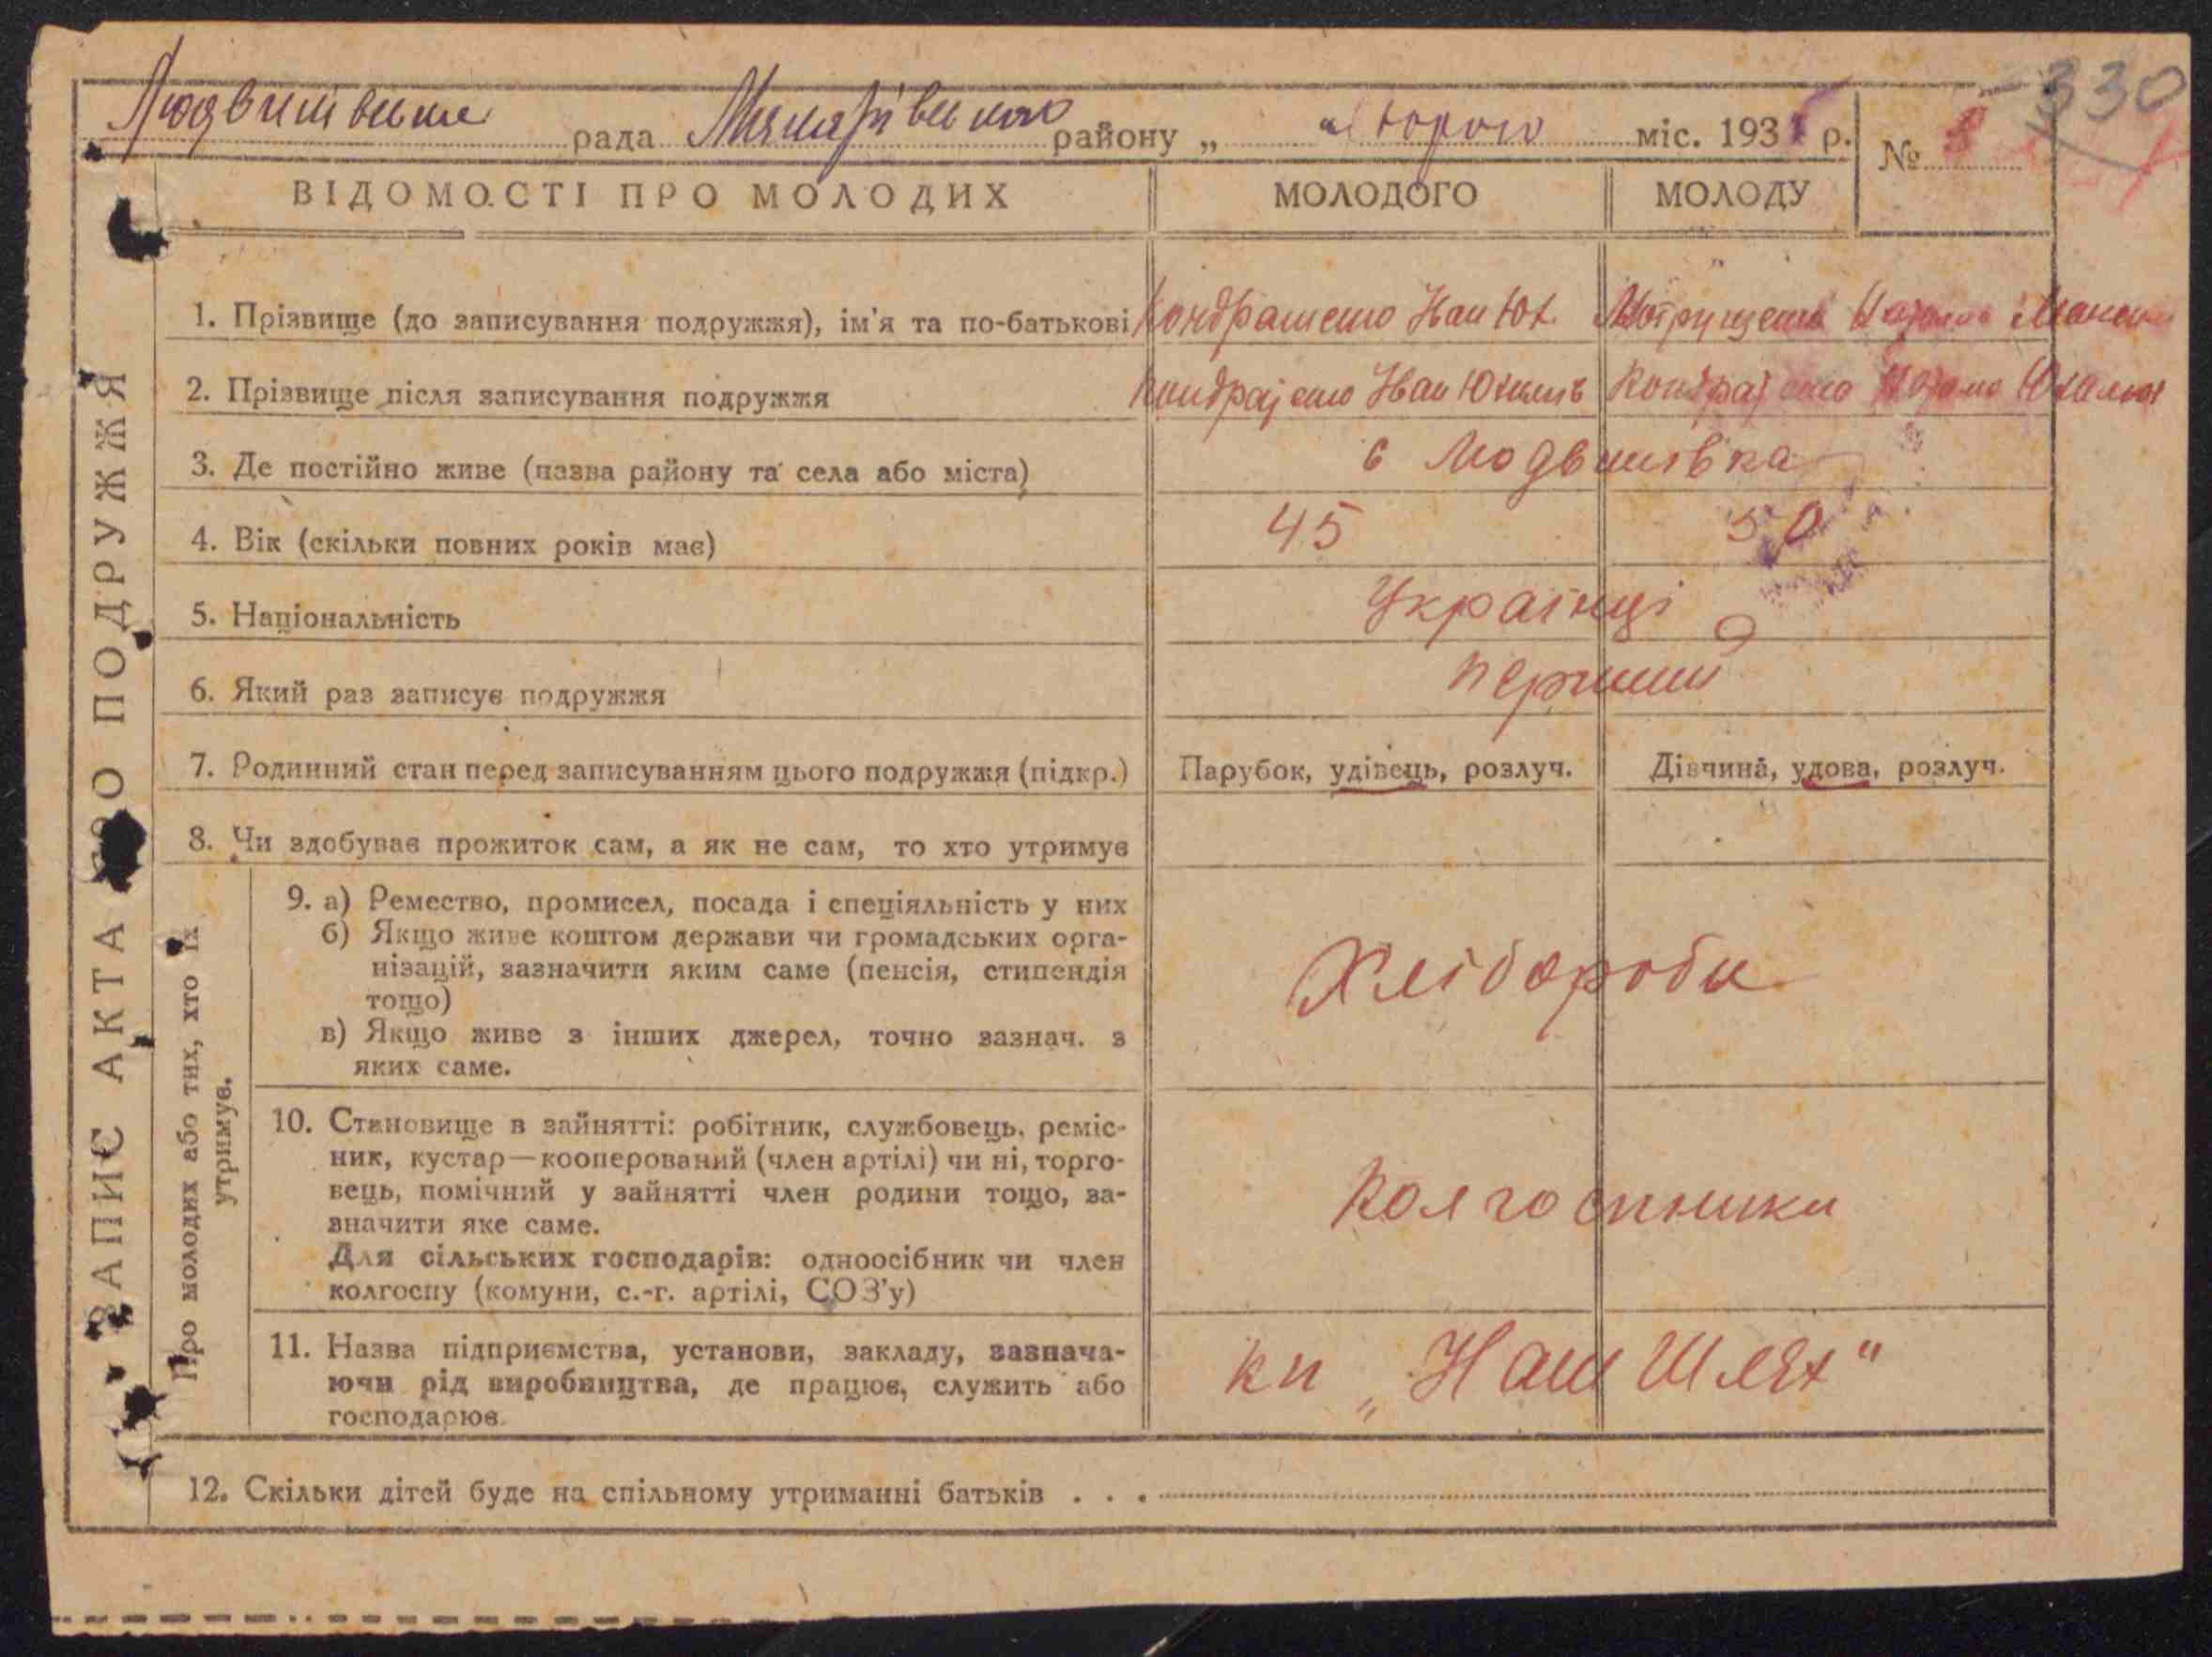 330
рада району „ міс. 193 р. №
ВІДОМОСТІ ПРО МОЛОДИХ МОЛОДОГО МОЛОДУ
ЗАПИС АКТА ПРО ПОДРУЖЖЯ
1. Прізвище (до записування подружжя), ім'я та по-батькові
2. Прізвище після записування подружжя
3. Де постійно живе (назва району та села або міста) с Людвинівка
4. Вік (скільки повних років має) 45 50
5. Національність Українці
6. Який раз записує подружжя перший
7. Родинний стан перед записуванням цього подружжя (підкр.) Парубок, удівець, розлуч. Дівчина, удова, розлуч.
8. Чи здобуває прожиток сам, а як не сам, то хто утримує
Про молодих або тих, хто їх
утримує.
9. а) Ремество, промисел, посада і спеціяльність у них
б) Якщо живе коштом держави чи громадських орга-
нізацій, зазначити яким саме (пенсія, стипендія
тощо)
в) Якщо живе з інших джерел, точно зазнач. з
яких саме.
Хлібороби
10. Становище в зайнятті: робітник, службовець, реміс-
ник, кустар—кооперований (член артілі) чи ні, торго-
вець, помічний у зайнятті член родини тощо, за-
значити яке саме.
Для сільських господарів: одноосібник чи член
колгоспу (комуни, с.-г. артілі, СОЗ'у)
Колгоспники
11. Назва підприємства, установи, закладу, зазнача-
ючи рід виробництва, де працює, служить або
господарює.
кп „Наш Шлях"
12. Скільки дітей буде на спільному утриманні батьків . . .